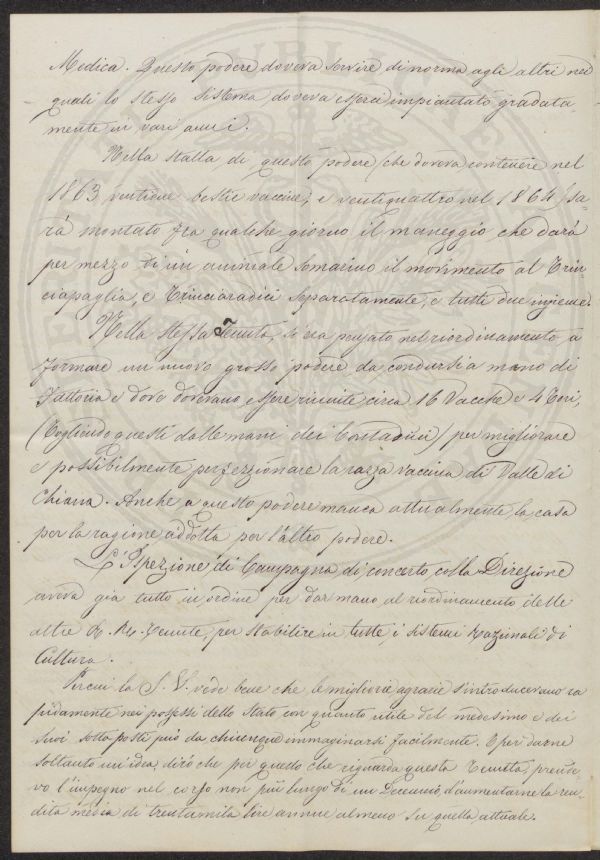 Medica. Questo podere doveva servire di norma agli altri nei
quali lo stesso sistema doveva esserci impiantato gradata
mente in vari anni.
Nella stalla di questo podere (che doveva contenere nel
1863 ventidue bestie vaccine, e ventiquattro nel 1864) sa
rà montato fra qualche giorno il maneggio che darà
per mezzo di un animale somarino il movimento al Trin
ciapaglia, e Trinciaradici separatamente, e tutti due insieme.
Nella stessa Tenuta, si era pensato nel riordinamento a
formare un nuovo grosso podere da condursi a mano di
Fattoria e dove dovevano essere riunite circa 16 Vacche e 4 Tori,
(Togliendo questi dalle mani dei Contadini) per migliorare
e possibilmente perfezzionare la razza vaccina di Valle di
Chiana. Anche a questo podere manca attualmente la casa
per la ragione addotta per l'altro podere.
L'Ispezione di Campagna di concerto colla Direzione
aveva già tutto in ordine per dar mano al riordinamento delle
altre R. R. Tenute, per stabilire in tutte i sistemi razionali di
Cultura.
Percui la S. V. vede bene che le migliorie agrarie s'introducevano ra
pidamente nei possessi dello Stato con quanto utile del medesimo e dei
suoi sottoposti può da chiunque immaginarsi facilmente. E per darne
soltanto un'idea, dirò che per quello che riguarda questa Tenuta, prende
vo l'impegno nel corso non più lungo di un Decennio, d'aumentarne la ren
dita media di trentamila lire annue almeno su quella attuale.